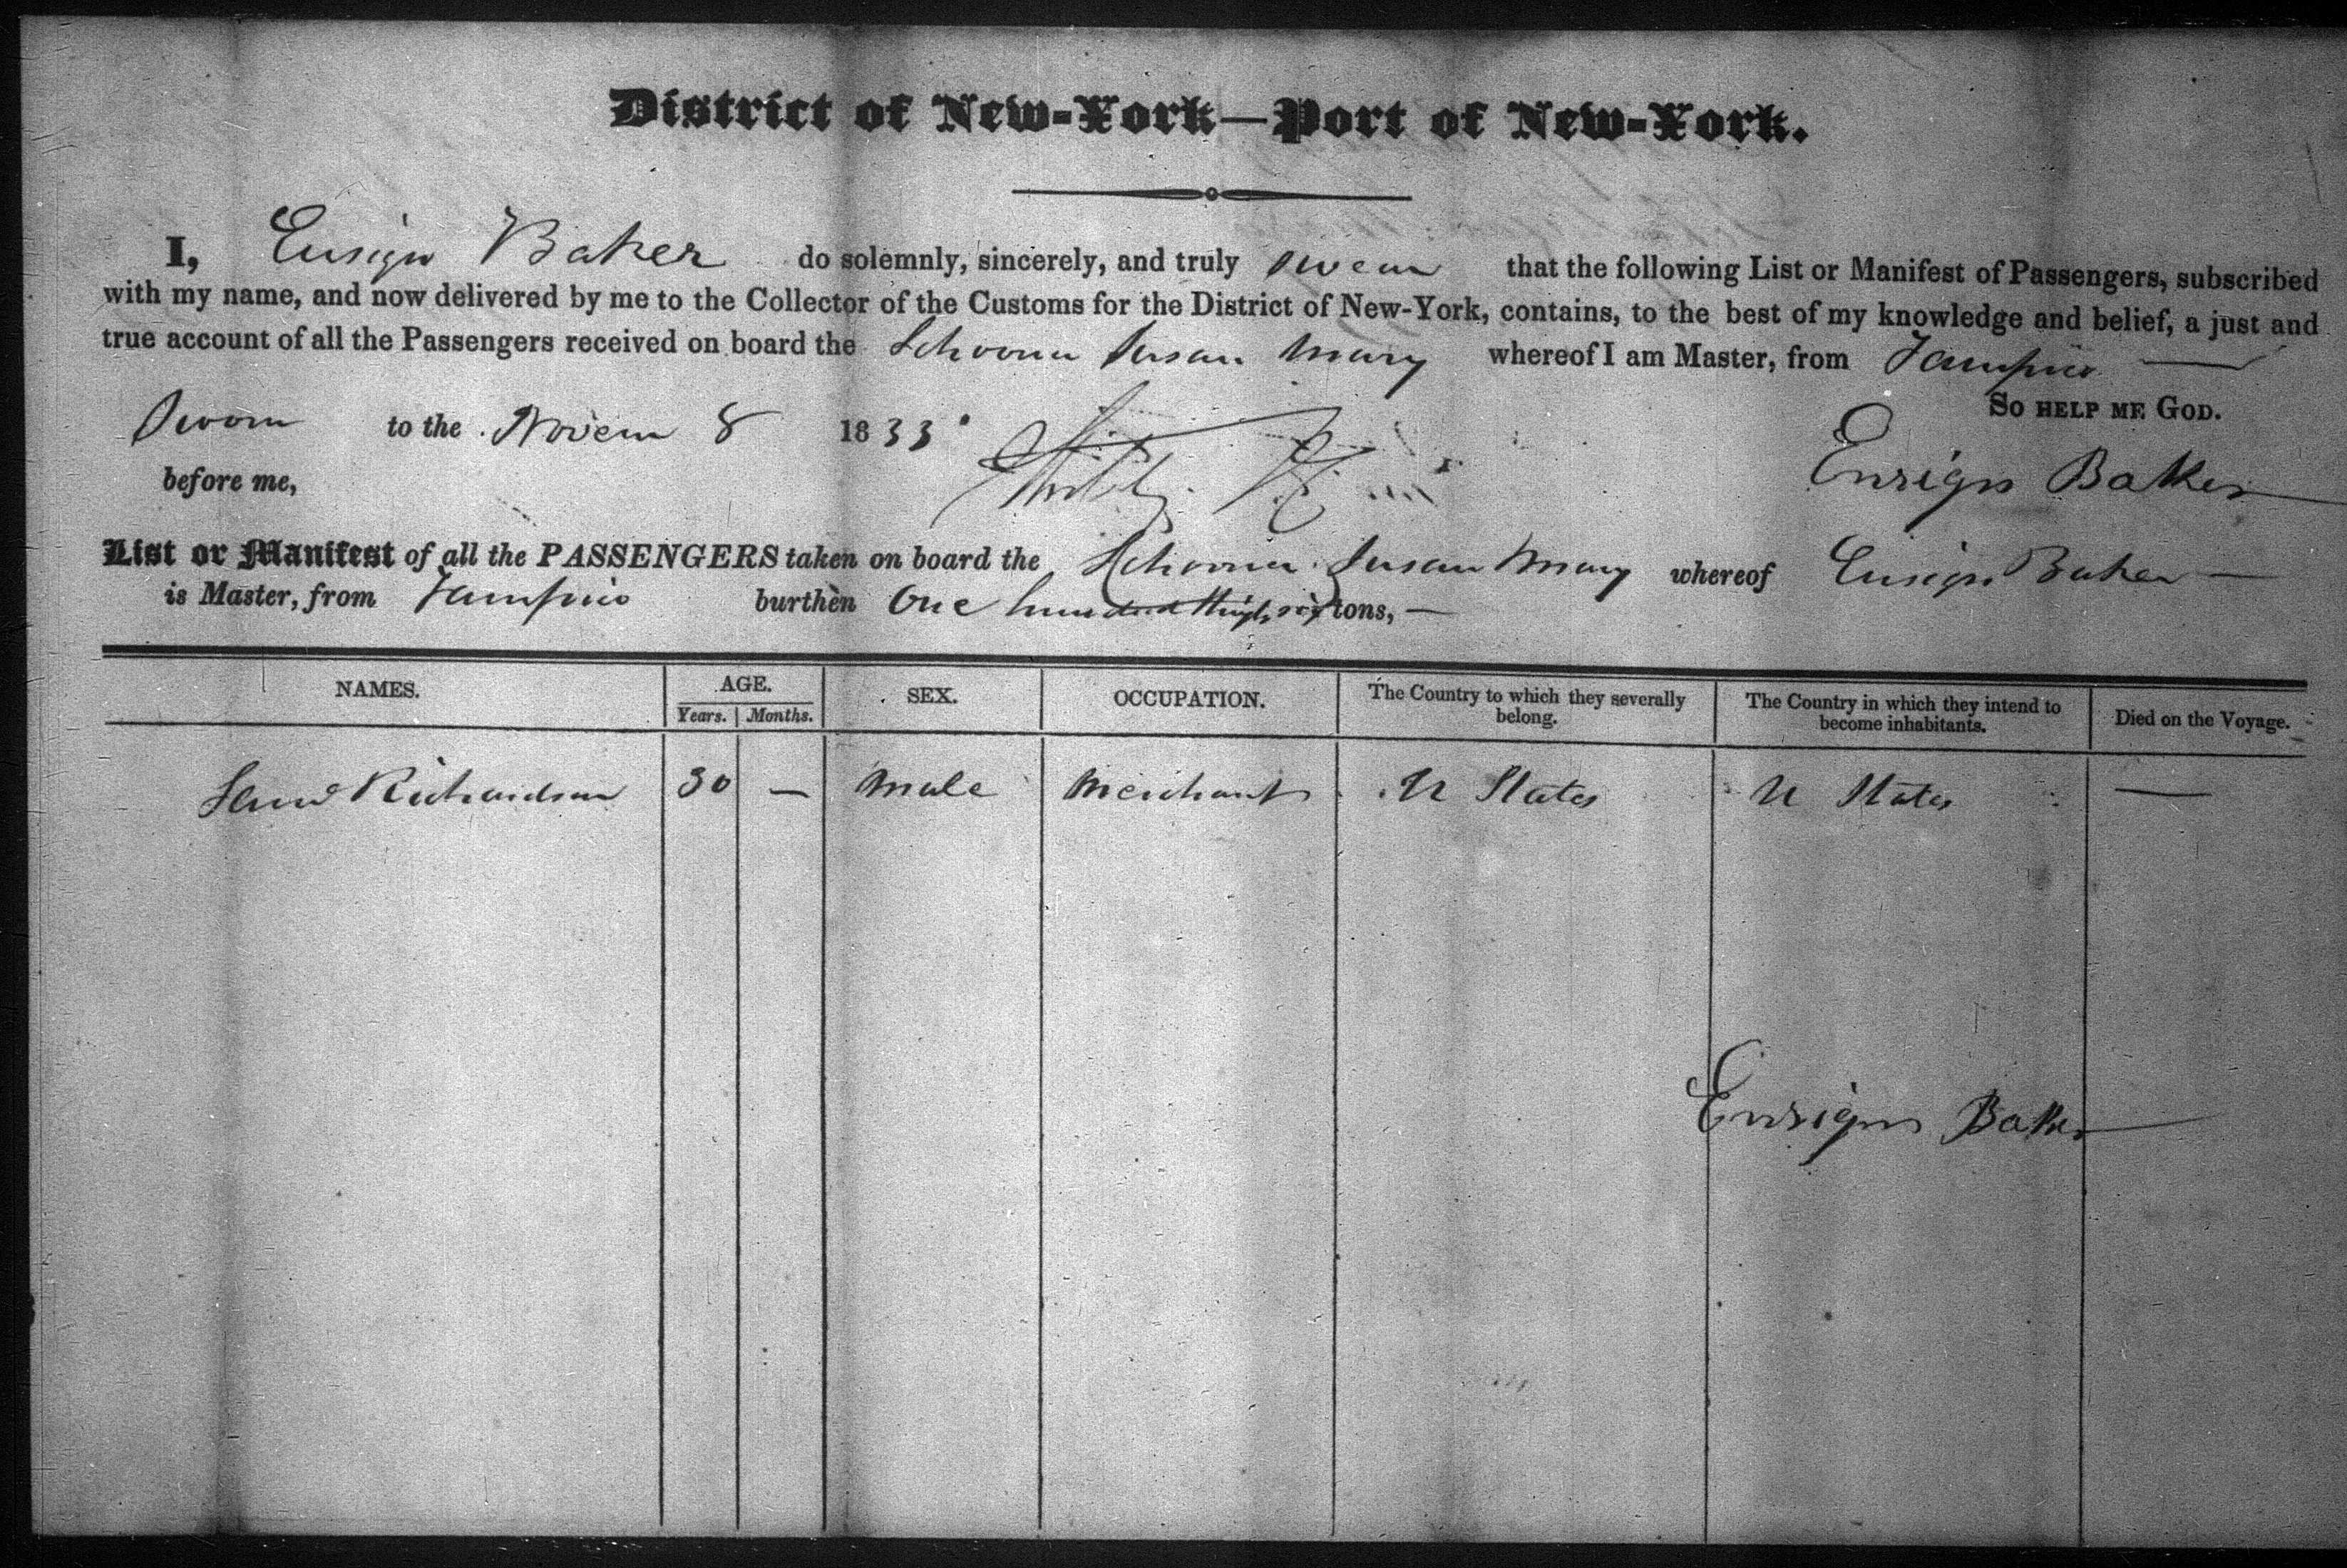 District of New-York—Port of New-York.
I, Ensign Baker do solemnly, sincerely, and truly swear that the following List or Manifest of Passengers, subscribed
with my name, and now delivered by me to the Collector of the Customs for the District of New-York, contains, to the best of my knowledge and belief, a just and
true account of all the Passengers received on board the Schooner Susan Mary whereof I am Master, from Tampico —
So help me God.
Sworn to the Novem 8 1833
Ensign Baker
before me,
List or Manifest of all the PASSENGERS taken on board the Schooner Susan Mary whereof Ensign Baker —
is Master, from Tampico burthen One hundred thirty six tons, —
NAMES. AGE. SEX. OCCUPATION. The Country to which they severally belong. The Country in which they intend to become inhabitants. Died on the Voyage.
Years. Months.
Richardson 30 — Male Merchant U States U States —
Ensign Baker